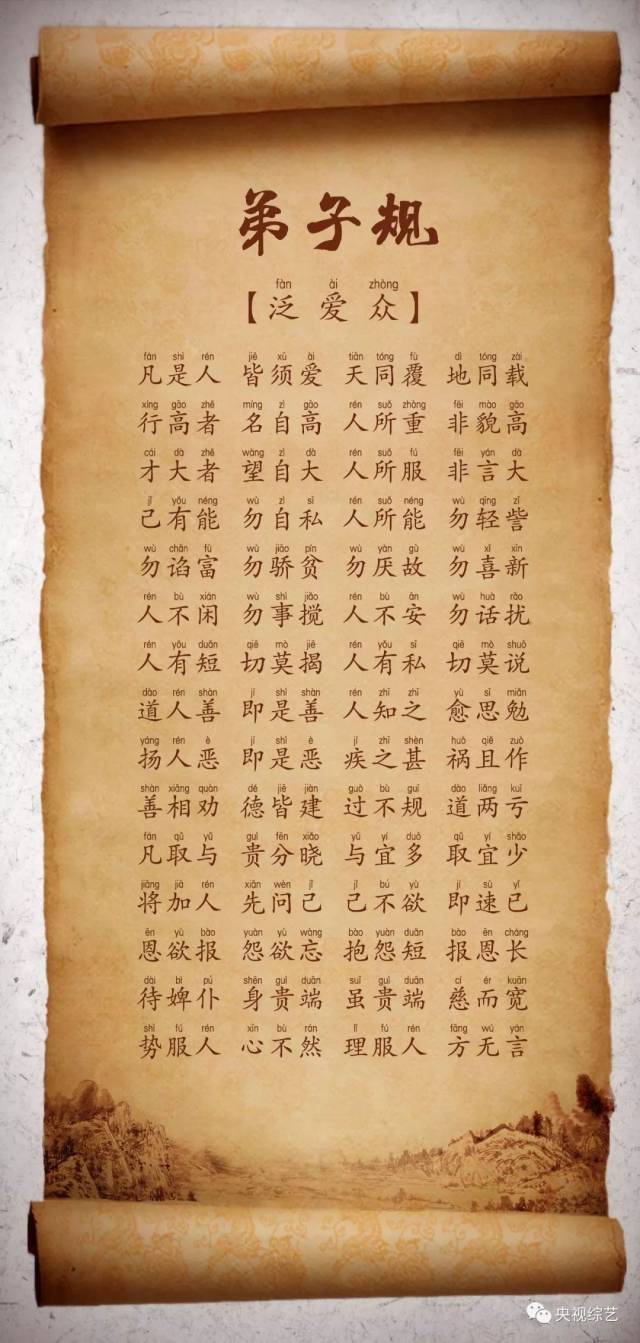 弟子规
fàn ài zhòng
【泛爱众】
fán shì rén jiē xū ài tiān tóng fù dì tóng zài
凡是人 皆须爱 天同覆 地同载
xíng gāo zhě míng zì gāo rén suǒ zhòng fēi mào gāo
行高者 名自高 人所重 非貌高
cái dà zhě wàng zì dà rén suǒ fú fēi yán dà
才大者 望自大 人所服 非言大
jǐ yǒu néng wù zì sī rén suǒ néng wù qīng zǐ
己有能 勿自私 人所能 勿轻訾
wù chǎn fù wù jiāo pín wù yàn gù wù xǐ xīn
勿谄富 勿骄贫 勿厌故 勿喜新
rén bù xián wù shì jiǎo rén bù ān wù huà rǎo
人不闲 勿事搅 人不安 勿话扰
rén yǒu duǎn qiè mò jiē rén yǒu sī qiè mò shuō
人有短 切莫揭 人有私 切莫说
dào rén shàn jí shì shàn rén zhī zhī yù sī miǎn
道人善 即是善 人知之 愈思勉
yáng rén è jí shì è jí zhī shèn huò qiě zuò
扬人恶 即是恶 疾之甚 祸且作
shàn xiāng quàn dé jiē jiàn guò bù guī dào liǎng kuī
善相劝 德皆建 过不规 道两亏
fán qǔ yǔ guì fēn xiǎo yǔ yí duō qǔ yí shǎo
凡取与 贵分晓 与宜多 取宜少
jiāng jiā rén xiān wèn jǐ jǐ bú yù jí sù yǐ
将加人 先问己 己不欲 即速已
ēn yù bào yuàn yù wàng bào yuàn duǎn bào ēn cháng
恩欲报 怨欲忘 抱怨短 报恩长
dài bì pú shēn guì duān suī guì duān cí ér kuān
待婢仆 身贵端 虽贵端 慈而宽
shì fú rén xīn bù rán lǐ fú rén fāng wú yán
势服人 心不然 理服人 方无言
央视综艺